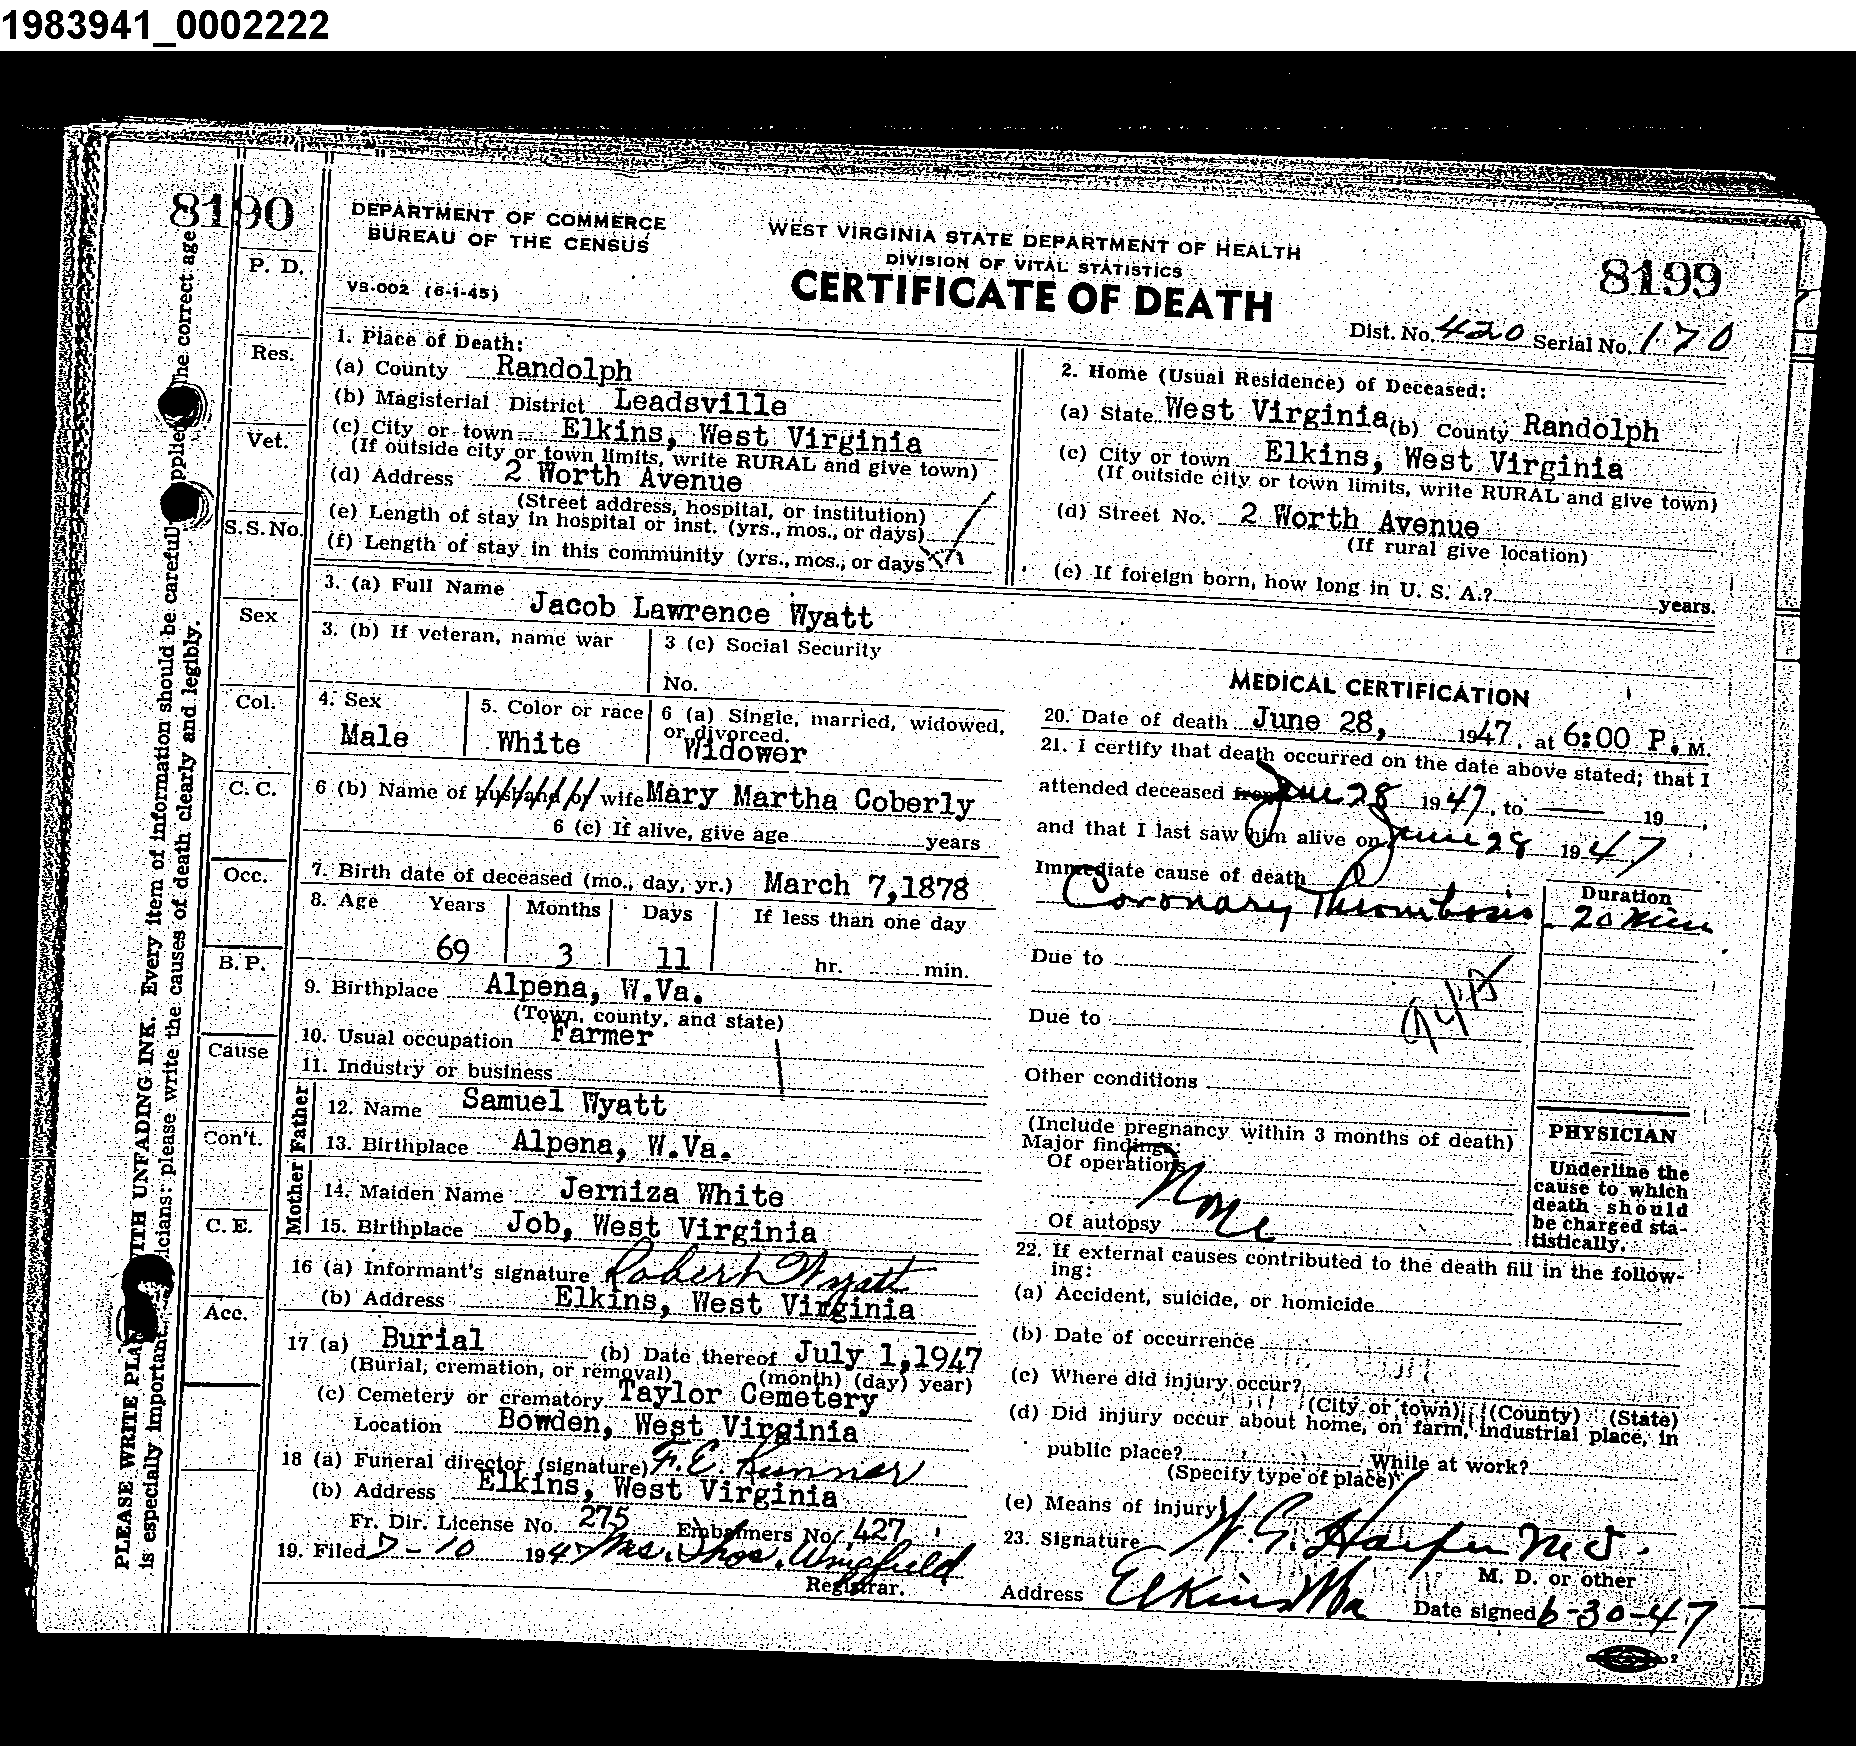 1983941_0002222
8190
DEPARTMENT OF COMMERCE
BUREAU OF THE CENSUS
VS-002 (6-1-45)
WEST VIRGINIA STATE DEPARTMENT OF HEALTH
DIVISION OF VITAL STATISTICS
CERTIFICATE OF DEATH
8199
Dist. No. 420 Serial No. 170
P. D.
Res.
Vet.
S.S.No.
Sex
Col.
C. C.
Occ.
B. P.
Cause
Con't.
C. E.
Acc.
PLEASE WRITE PLA WITH UNFADING INK. Every item of information should be carefull supplie The correct age
is especially important. icians: please write the causes of death clearly and legibly.
1. Place of Death:
(a) County Randolph
(b) Magisterial District Leadsville
(c) City or town Elkins, West Virginia
(If outside city or town limits, write RURAL and give town)
(d) Address 2 Worth Avenue
(Street address, hospital, or institution)
(e) Length of stay in hospital or inst. (yrs., mos., or days)
(f) Length of stay in this community (yrs., mos., or days
2. Home (Usual Residence) of Deceased:
(a) State West Virginia (b) County Randolph
(c) City or town Elkins, West Virginia
(If outside city or town limits, write RURAL and give town)
(d) Street No. 2 Worth Avenue
(If rural give location)
(e) If foreign born, how long in U. S. A.? years.
3. (a) Full Name Jacob Lawrence Wyatt
3. (b) If veteran, name war
3 (c) Social Security
No.
4. Sex
Male
5. Color or race
White
6 (a) Single, married, widowed,
or divorced.
Widower
6 (b) Name of husband or wife Mary Martha Coberly
6 (c) If alive, give age years
7. Birth date of deceased (mo., day, yr.) March 7, 1878
8. Age Years Months Days If less than one day
69 3 11 hr. min.
9. Birthplace Alpena, W.Va.
(Town, county, and state)
10. Usual occupation Farmer
11. Industry or business
Father
12. Name Samuel Wyatt
13. Birthplace Alpena, W.Va.
Mother
14. Maiden Name Jerniza White
15. Birthplace Job, West Virginia
16 (a) Informant's signature Robert Wyatt
(b) Address Elkins, West Virginia
17 (a) Burial (b) Date thereof July 1, 1947
(Burial, cremation, or removal) (month) (day) year)
(c) Cemetery or crematory Taylor Cemetery
Location Bowden, West Virginia
18 (a) Funeral director (signature) F. E. Runner
(b) Address Elkins, West Virginia
Fr. Dir. License No. 275 Embalmers No. 427
19. Filed 7-10 1947 Mrs. Thos. Wingfield
Registrar.
MEDICAL CERTIFICATION
20. Date of death June 28, 1947, at 6:00 P. M.
21. I certify that death occurred on the date above stated; that I
attended deceased from June 28 1947, to — 19
and that I last saw him alive on June 28 1947
Immediate cause of death
Coronary Thrombosis
Duration
20 min
Due to
Due to
Other conditions
(Include pregnancy within 3 months of death)
Major findings:
Of operations
None
Of autopsy
PHYSICIAN
Underline the
cause to which
death should
be charged sta-
tistically.
22. If external causes contributed to the death fill in the follow-
ing:
(a) Accident, suicide, or homicide
(b) Date of occurrence
(c) Where did injury occur?
(City or town) (County) (State)
(d) Did injury occur about home, on farm, industrial place, in
public place? While at work?
(Specify type of place)
(e) Means of injury
23. Signature Harper M.D.
M. D. or other
Address Elkins Wva Date signed 6-30-47